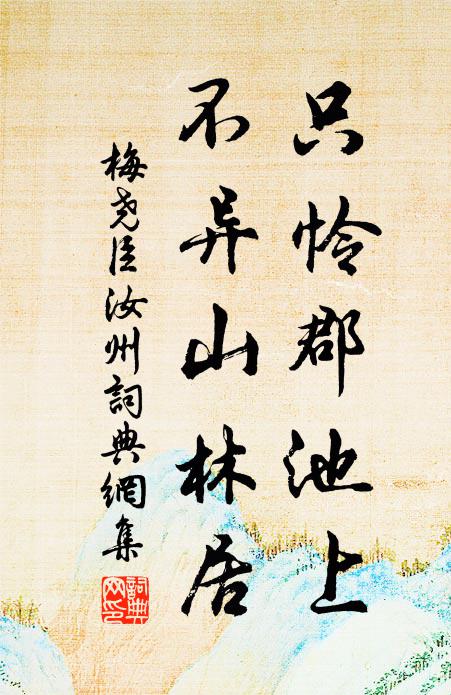 只怜郡池上
不异山林居
梅尧臣汝州詞典網集
詞典网印